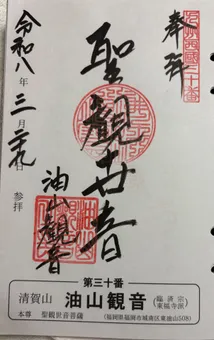 奉拝
聖観世音
油山観音
令和八年三月二十九日参拝
第三十番
清賀山 油山観音 (臨済宗東福寺派)
本尊 聖観世音菩薩 (福岡県福岡市城南区東油山508)